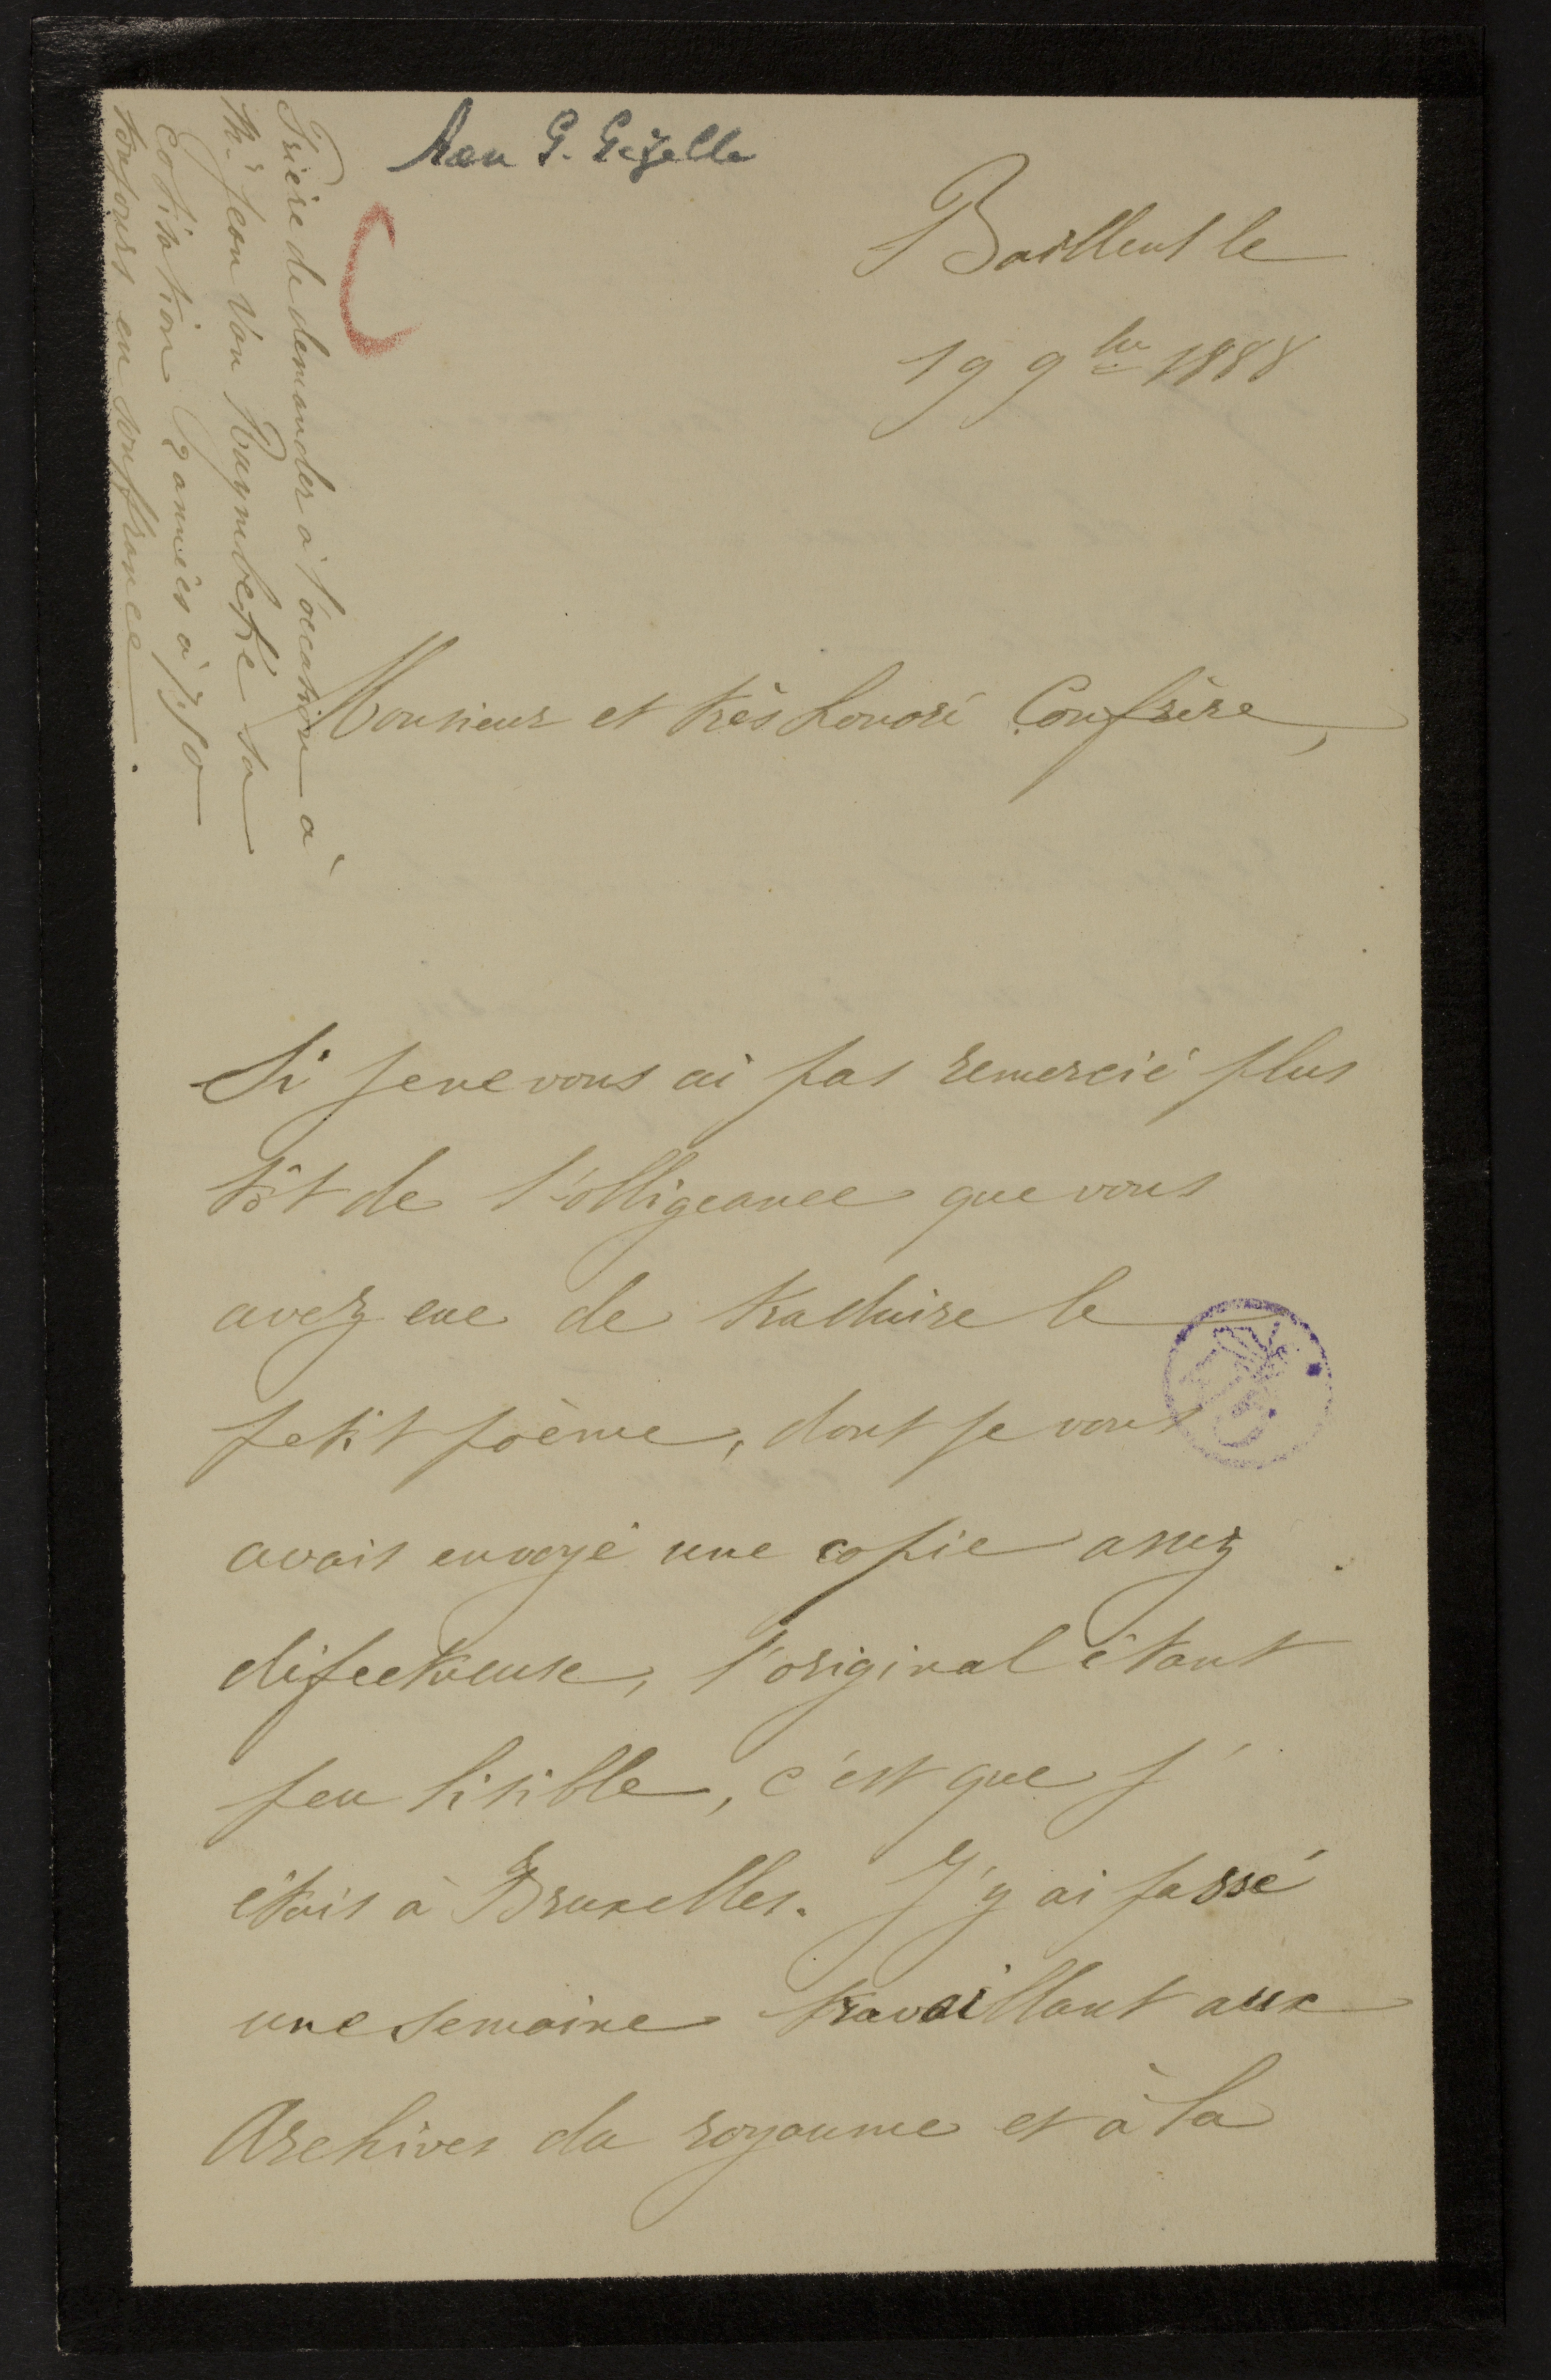 Aan G. Gezelle
Bailleul le
19 9bre 1888
Monsieur et très honoré Confrère,
Si je ne vous ai pas remercié plus
tôt de l'obligeance que vous
avez eue de traduire le
petit poème, dont je vous
avais envoyé une copie assez
défectueuse, l'original étant
peu lisible, c'est que j'
étais à Bruxelles. J'y ai passé
une semaine travaillant aux
Archives du royaume et à la
Prière de demander à l'occasion à
Mr Jean Van Raymbeke sa
cotisation 2 années à 7,50
toujours en souffrance.